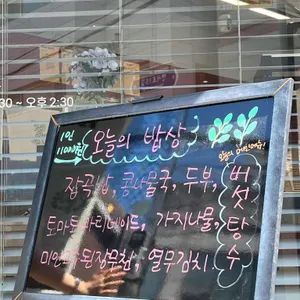 :30 ~ 오후 2:30
1인
11000원
오늘의 밥상
잡곡밥, 콩나물국, 두부,
토마토마리네이드, 가지나물,
된장무침, 열무김치,
버섯탕수